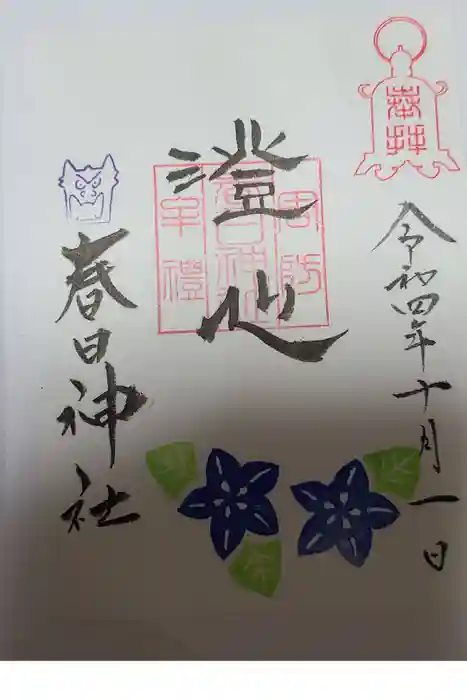 奉拝
令和四年十月一日
澄心
周防
春日神社
牟禮
春日神社